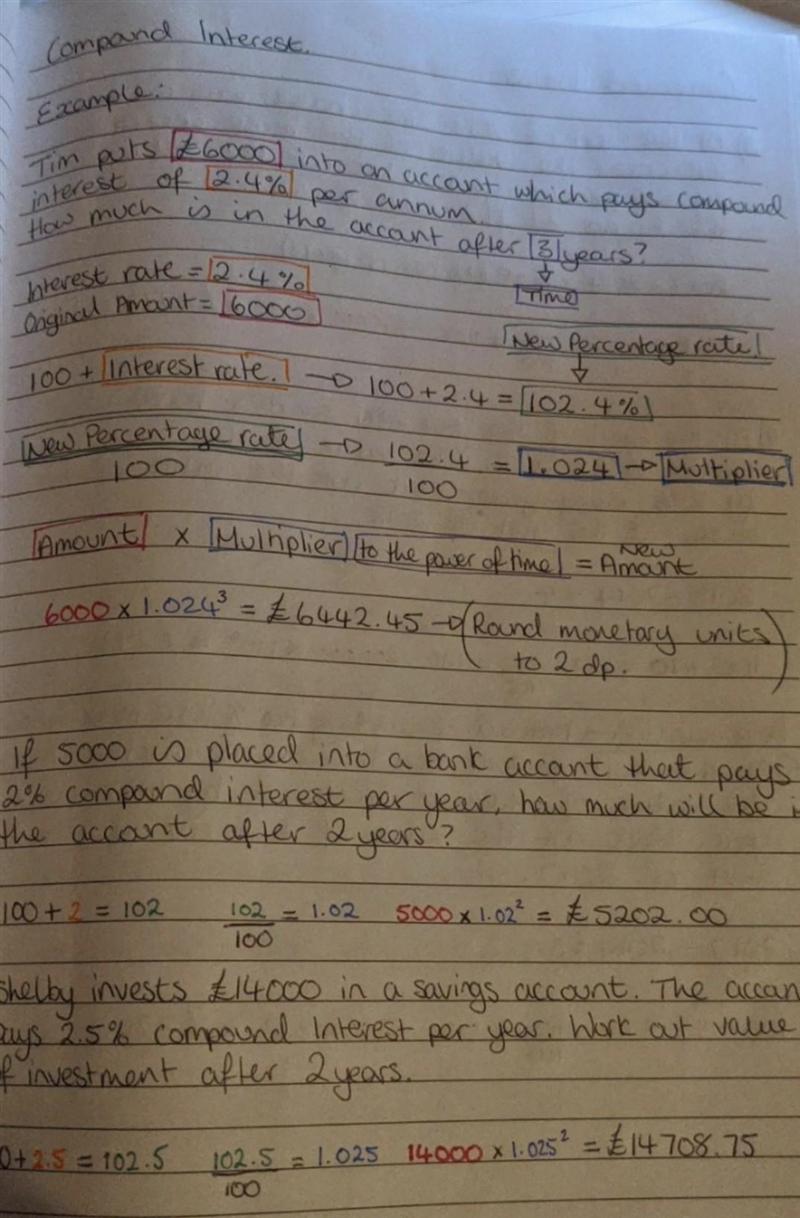 Compound Interest.
Example:
Tim puts £6000 into an account which pays compound
interest of 2.4% per annum.
How much is in the account after 3 years?
Time
Interest rate = 2.4%
Original Amount = 6000
New Percentage rate
100 + Interest rate. → 100 + 2.4 = 102.4%
New Percentage rate → 102.4 = 1.024 → Multiplier
100 100
Amount × Multiplier to the power of time = New Amount
6000 × 1.024³ = £6442.45 → (Round monetary units
to 2 dp.)
If 5000 is placed into a bank account that pays
2% compound interest per year, how much will be i
the account after 2 years?
100 + 2 = 102 102 = 1.02 5000 × 1.02² = £5202.00
100
Shelby invests £14000 in a savings account. The accoun
ays 2.5% compound Interest per year. Work out value
f investment after 2 years.
0 + 2.5 = 102.5 102.5 = 1.025 14000 × 1.025² = £14708.75
100